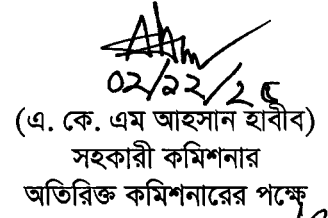 (এ. কে. এম আহসান হাবীব)
সহকারী কমিশনার
অতিরিক্ত কমিশনারের পক্ষে